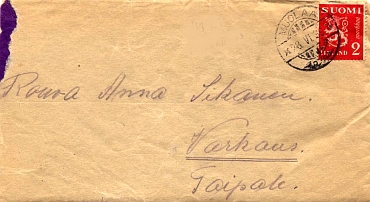 MUOLAA
SUOMI
FINLAND 2
Rouva Anna Sikanen.
Varkaus.
Taipale.